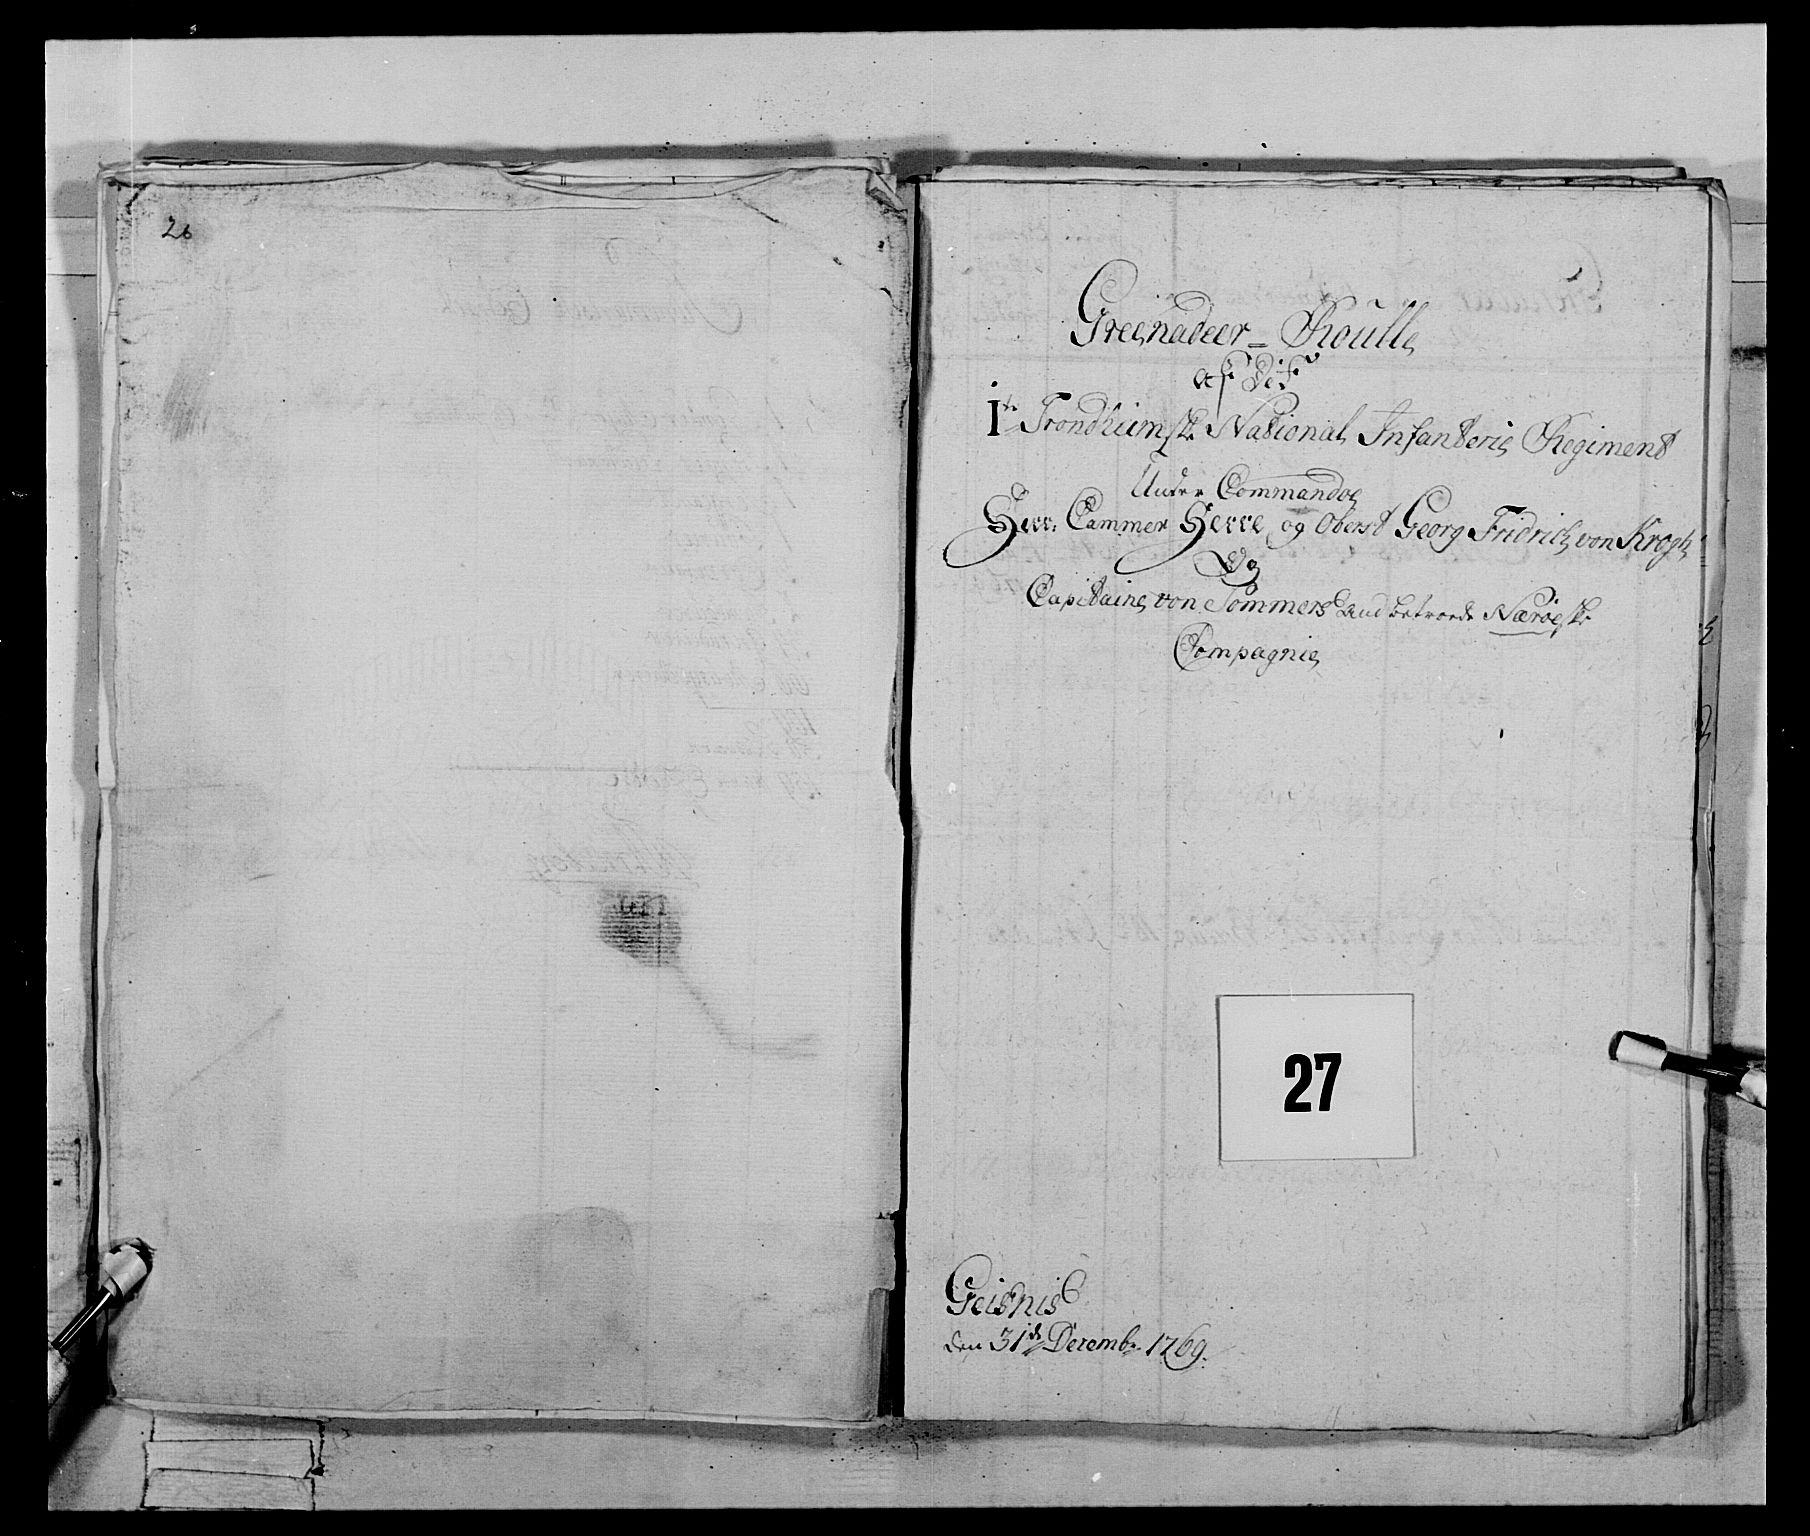 26
Greenadeer - Roulle
af det
1te Trondhiemske National Infanterie Regiment
Under Commandoe
Herr Cammer Herre og Oberst Georg Fridrich von Krogh
Og
Capitaine von Sommers anbetroede Nærøeske
Compagnie
27
Geisnis
den 31de Decembr 1769.